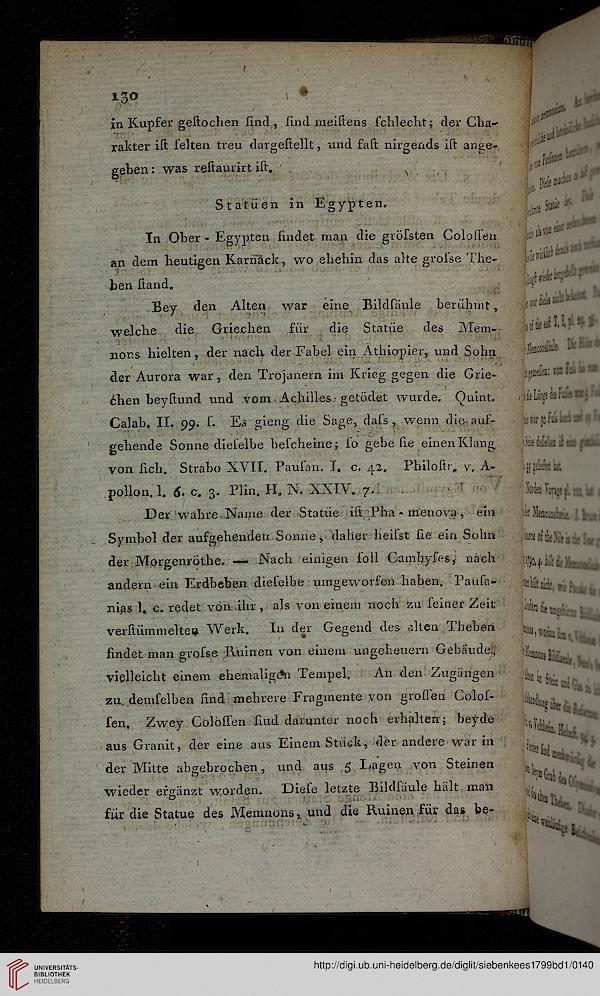 130
in Kupfer geſtochen ſind, ſind meiſtens ſchlecht; der Cha-
rakter iſt ſelten treu dargeſtellt, und faſt nirgends iſt ange-
geben: was reſtaurirt iſt.
Statüen in Egypten.
In Ober-Egypten findet man die gröſsten Coloſſen
an dem heutigen Karnack, wo ehehin das alte groſse The-
ben ſtand.
Bey den Alten war eine Bildſäule berühmt,
welche die Griechen für die Statüe des Mem-
nons hielten, der nach der Fabel ein Äthiopier, und Sohn
der Aurora war, den Trojanern im Krieg gegen die Grie-
chen beyſtund und vom Achilles getödet wurde. Quint.
Calab. II. 99. ſ. Es gieng die Sage, daſs, wenn die auf-
gehende Sonne dieſelbe beſcheine; ſo gebe ſie einen Klang
von ſich. Strabo XVII. Pauſan. I. c. 42. Philoſtr. v. A-
pollon. l. 6. c. 3. Plin. H. N. XXIV. 7.
Der wahre Name der Statüe iſt Pha-menova, ein
Symbol der aufgehenden Sonne, daher heiſst ſie ein Sohn
der Morgenröthe. — Nach einigen ſoll Cambyſes, nach
andern ein Erdbeben dieſelbe umgeworfen haben. Pauſa-
nias l. c. redet von ihr, als von einem noch zu ſeiner Zeit
verſtümmelten Werk. In der Gegend des alten Theben
findet man groſse Ruinen von einem ungeheuern Gebäude,
vielleicht einem ehemaligen Tempel. An den Zugängen
zu demſelben ſind mehrere Fragmente von groſſen Coloſ-
ſen. Zwey Coloſſen ſind darunter noch erhalten; beyde
aus Granit, der eine aus Einem Stück, der andere war in
der Mitte abgebrochen, und aus 5 Lagen von Steinen
wieder ergänzt worden. Dieſe letzte Bildſäule hält man
für die Statue des Memnons, und die Ruinen für das be-
UNIVERSITÄTS-
BIBLIOTHEK
HEIDELBERG
http://digi.ub.uni-heidelberg.de/diglit/siebenkees1799bd1/0140